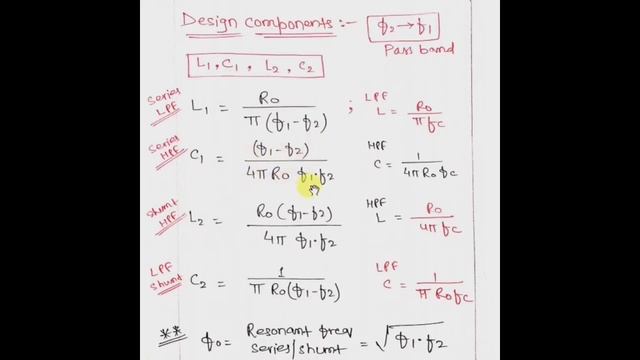 Design components :- f₂ → f₁
Pass band
L₁, C₁, L₂, C₂
Series LPF L₁ = Ro / π(f₁-f₂) ; LPF L = Ro / πfc
Series HPF C₁ = (f₁-f₂) / 4πRo f₁·f₂ HPF C = 1 / 4πRo fc
Shunt HPF L₂ = Ro(f₁-f₂) / 4π f₁·f₂ HPF L = Ro / 4πfc
LPF Shunt C₂ = 1 / πRo(f₁-f₂) LPF C = 1 / πRofc
** fo = Resonant freq series/shunt = √f₁·f₂